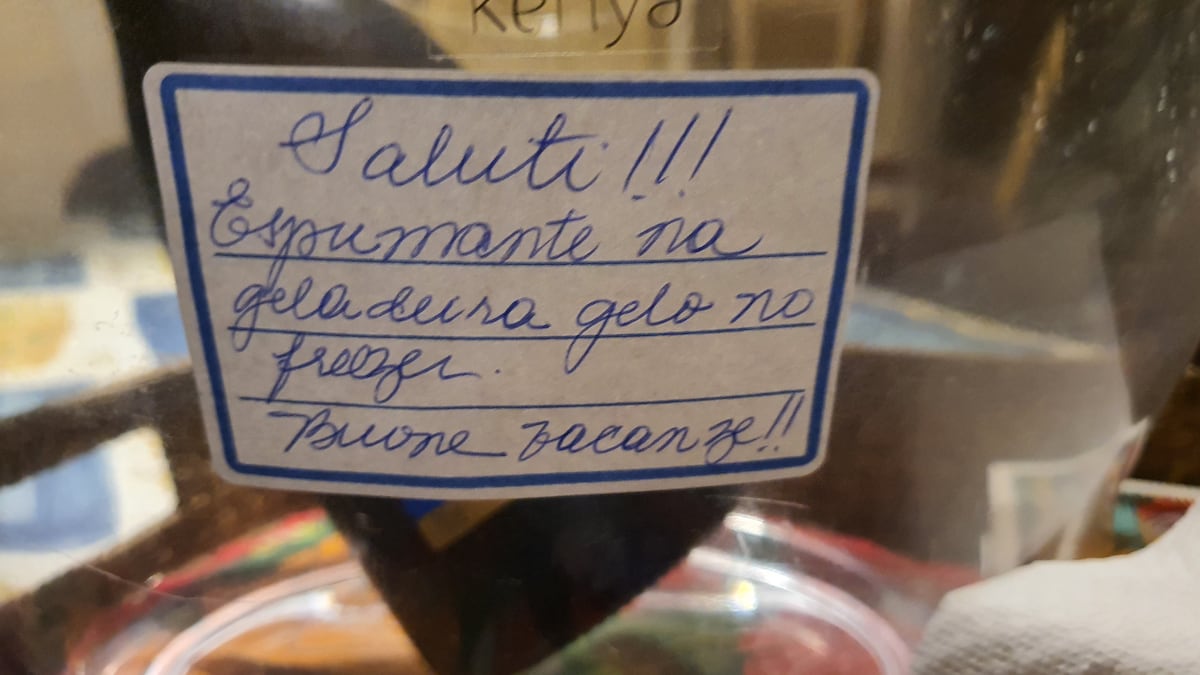 Kenya
Saluti!!!
Espumante na
geladeira gelo no
freezer.
Buone vacanze!!